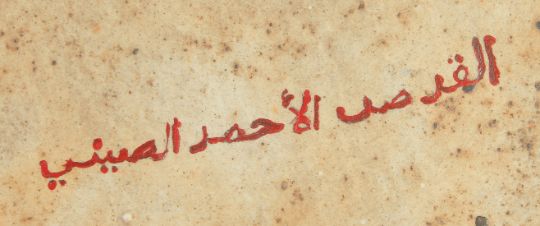 القدصد الأحمر الصيني